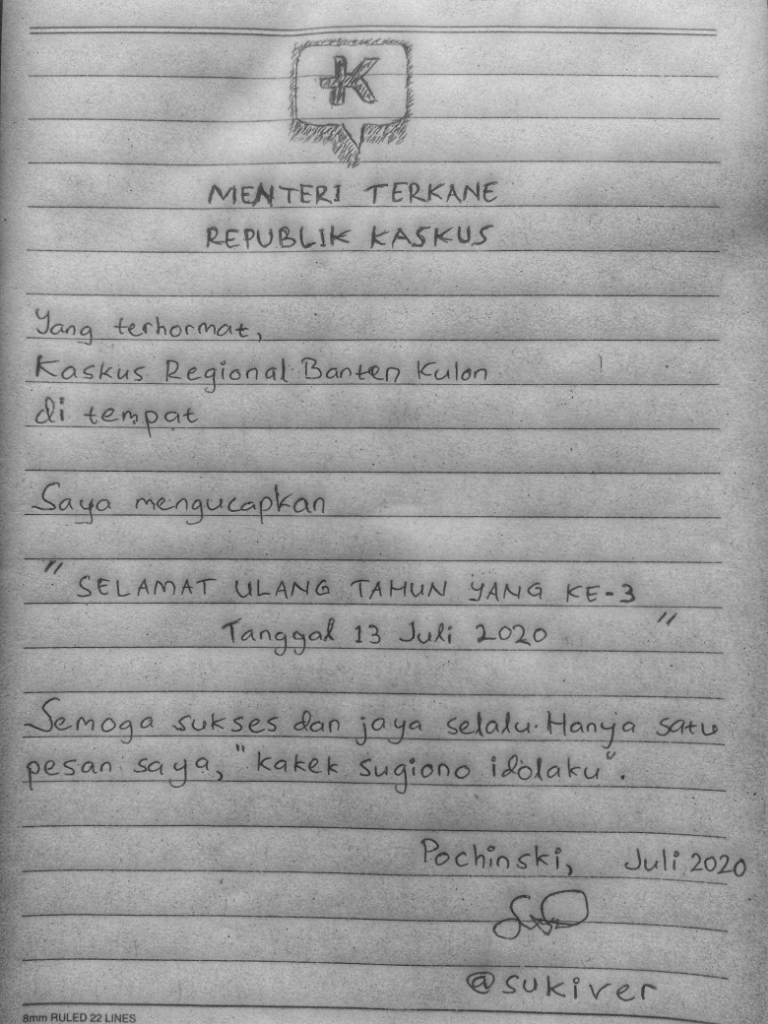 K
MENTERI TERKANE
REPUBLIK KASKUS
Yang terhormat,
Kaskus Regional Banten Kulon
di tempat
Saya mengucapkan
" SELAMAT ULANG TAHUN YANG KE-3
Tanggal 13 Juli 2020 "
Semoga sukses dan jaya selalu. Hanya satu
pesan saya, "kakek sugiono idolaku".
Pochinski, Juli 2020
@sukiver
8mm RULED 22 LINES